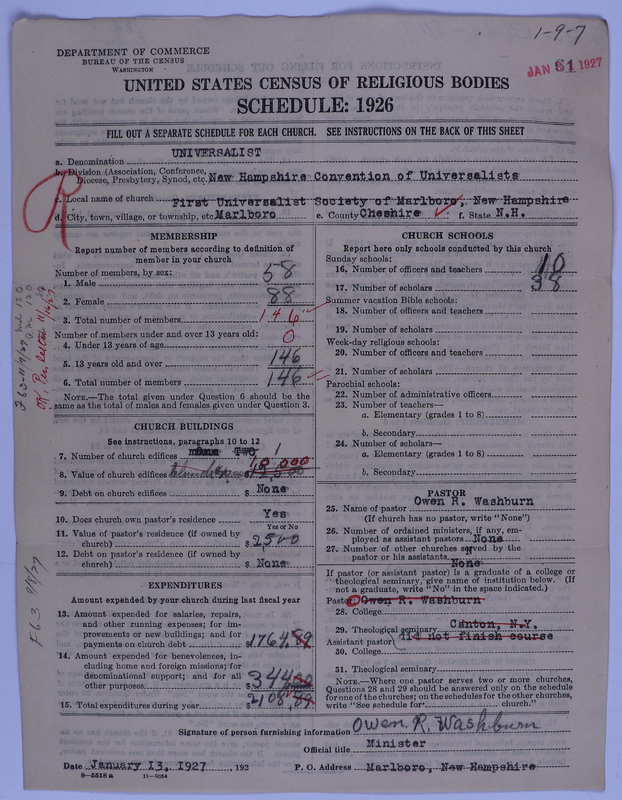 1-9-7
JAN 31 1927
DEPARTMENT OF COMMERCE
BUREAU OF THE CENSUS
WASHINGTON
UNITED STATES CENSUS OF RELIGIOUS BODIES
SCHEDULE: 1926
FILL OUT A SEPARATE SCHEDULE FOR EACH CHURCH. SEE INSTRUCTIONS ON THE BACK OF THIS SHEET
a. Denomination UNIVERSALIST
b. Division (Association, Conference,
Diocese, Presbytery, Synod, etc. New Hampshire Convention of Universalists
c. Local name of church First Universalist Society of Marlboro, New Hampshire
d. City, town, village, or township, etc. Marlboro e. County Cheshire f. State N.H.
R
MEMBERSHIP
Report number of members according to definition of
member in your church
Number of members, by sex:
1. Male 58
2. Female 88
3. Total number of members 146
Number of members under and over 13 years old:
4. Under 13 years of age 0
5. 13 years old and over 146
6. Total number of members 146
NOTE.—The total given under Question 6 should be
same as the total of males and females given under Question 3.
OK Per letter 11/16/27
CHURCH BUILDINGS
See instructions, paragraphs 10 to 12
7. Number of church edifices Two 1
8. Value of church edifices $ 10,000
9. Debt on church edifices $ None
10. Does church own pastor's residence Yes
Yes or No
11. Value of pastor's residence (if owned by
church) $ 2500
12. Debt on pastor's residence (if owned by
church) $ None
EXPENDITURES
Amount expended by your church during last fiscal year
13. Amount expended for salaries, repairs,
and other running expenses; for im-
provements or new buildings; and for
payments on church debt $ 1764.89
14. Amount expended for benevolences, in-
cluding home and foreign missions; for
denominational support; and for all
other purposes $ 344.00
15. Total expenditures during year $ 2108.89
CHURCH SCHOOLS
Report here only schools conducted by this church
Sunday schools:
16. Number of officers and teachers 10
17. Number of scholars 38
Summer vacation Bible schools:
18. Number of officers and teachers
19. Number of scholars
Week-day religious schools:
20. Number of officers and teachers
21. Number of scholars
Parochial schools:
22. Number of administrative officers
23. Number of teachers—
a. Elementary (grades 1 to 8)
b. Secondary
24. Number of scholars—
a. Elementary (grades 1 to 8)
b. Secondary
PASTOR
25. Name of pastor Owen R. Washburn
(If church has no pastor, write "None")
26. Number of ordained ministers, if any, em-
ployed as assistant pastors None
27. Number of other churches served by the
pastor or his assistants None
If pastor (or assistant pastor) is a graduate of a college or
theological seminary, give name of institution below. (If
not a graduate, write "No" in the space indicated.)
Pastor: Owen R. Washburn
28. College
29. Theological seminary Canton, N.Y.
Assistant pastor did not finish course
30. College
31. Theological seminary
NOTE.—Where one pastor serves two or more churches,
Questions 28 and 29 should be answered only on the schedule
for one of the churches; on the schedules for the other churches,
write "See schedule for church."
Signature of person furnishing information Owen R. Washburn
Official title Minister
Date January 13, 1927 , 192 P. O. Address Marlboro, New Hampshire
8—5518 a 11—9054